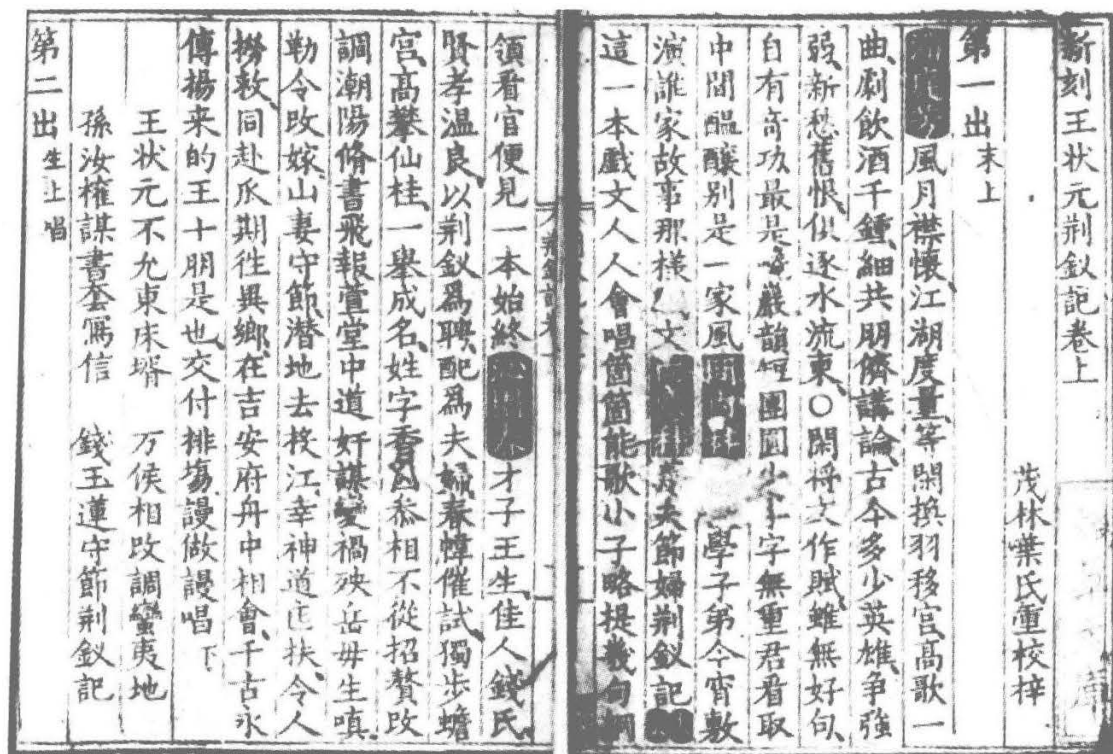 新刻王状元荆釵記卷上
茂林葉氏重校梓
第一出 末上
風月襟懷江湖度量等閑換羽移宮高歌一
曲劇飲酒千鍾細共朋儕講論古今多少英雄争強
弱新愁舊恨似逐水流東〇閑将文作賦雖無好句
自有奇功最是嚴韻短團圓少字無重君看取
中間醖釀别是一家風 學子第今宵敷
演誰家故事那樣文 義夫節婦荆釵記
這一本戲文人人會唱箇箇能歌小子略提幾句綱
領看官便見一本始終 才子王生佳人錢氏
賢孝温良以荆釵爲聘配爲夫婦春幃催試獨步蟾
宫高攀仙桂一舉成名姓字香因叅相不從招贅改
調潮陽脩書飛報萱堂中道奸謀變禍殃岳毋生嗔
勒令改嫁山妻守節潜地去投江幸神道匡扶令人
撈救同赴瓜期徃異鄉在吉安府舟中相會千古永
傳揚来的王十朋是也交付排塲謾做謾唱 下
王状元不允東床壻 万俟相改調蠻夷地
孫汝權謀書套寫信 錢玉蓮守節荆釵記
第二出 生上唱